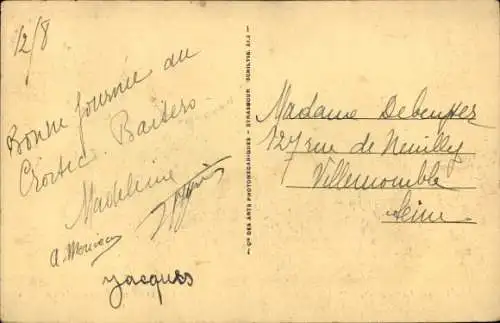 12/8
Bonne journée au
Crotoy. Baisers
Madeleine
A. Monique
Jacques
Cie DES ARTS PHOTOMÉCANIQUES - STRASBOURG-SCHILTIG. 
Madame Debuyser
127 rue de Neuilly
Villemomble
Seine